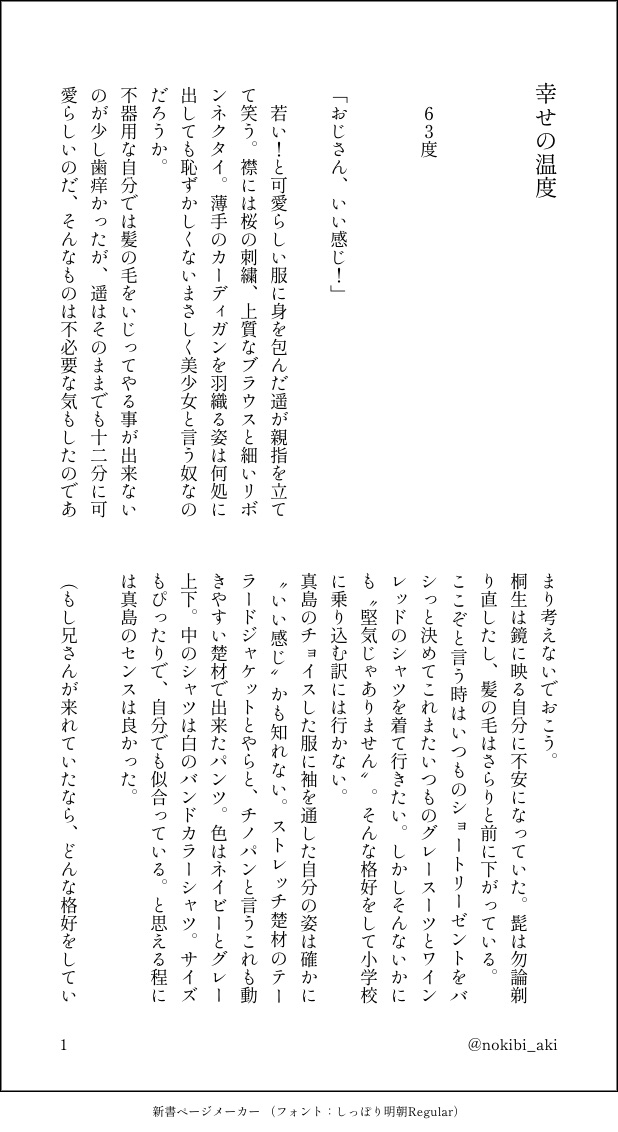 幸せの温度
63度
「おじさん、いい感じ！」
若い！と可愛らしい服に身を包んだ遥が親指を立て
て笑う。襟には桜の刺繍、上質なブラウスと細いリボ
ンネクタイ。薄手のカーディガンを羽織る姿は何処に
出しても恥ずかしくないまさしく美少女と言う奴なの
だろうか。
不器用な自分では髪の毛をいじってやる事が出来ない
のが少し歯痒かったが、遥はそのままでも十二分に可
愛らしいのだ、そんなものは不必要な気もしたのであ
まり考えないでおこう。
桐生は鏡に映る自分に不安になっていた。髭は勿論剃
り直したし、髪の毛はさらりと前に下がっている。
ここぞと言う時はいつものショートリーゼントをバ
シっと決めてこれまたいつものグレースーツとワイン
レッドのシャツを着て行きたい。しかしそんないかに
も〝堅気じゃありません〟。そんな格好をして小学校
に乗り込む訳には行かない。
真島のチョイスした服に袖を通した自分の姿は確かに
〝いい感じ〟かも知れない。ストレッチ楚材のテー
ラードジャケットとやらと、チノパンと言うこれも動
きやすい楚材で出来たパンツ。色はネイビーとグレー
上下。中のシャツは白のバンドカラーシャツ。サイズ
もぴったりで、自分でも似合っている。と思える程に
は真島のセンスは良かった。
（もし兄さんが来れていたなら、どんな格好をしてい
1
@nokibi_aki
新書ページメーカー （フォント：しっぽり明朝Regular）